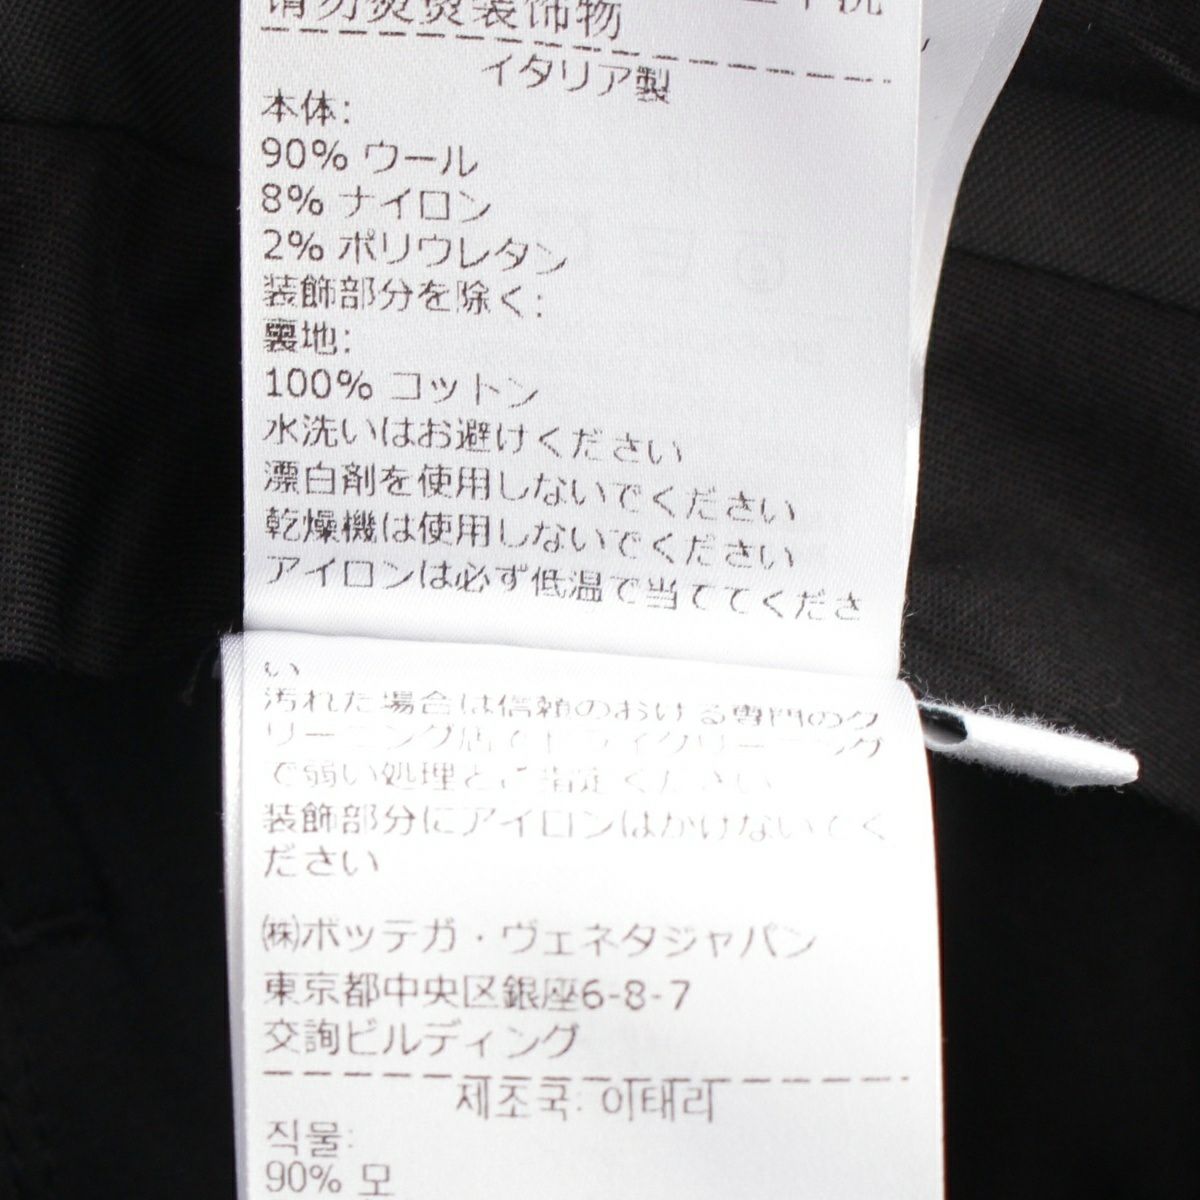 请勿熨烫装饰物
イタリア製
本体:
90% ウール
8% ナイロン
2% ポリウレタン
装飾部分を除く:
裏地:
100% コットン
水洗いはお避けください
漂白剤を使用しないでください
乾燥機は使用しないでください
アイロンは必ず低温で当ててくださ
い
汚れた場合は信頼のおける専門のク
リーニング店でドライクリーニング
で弱い処理とご指定ください
装飾部分にアイロンはかけないでく
ださい
㈱ボッテガ・ヴェネタジャパン
東京都中央区銀座6-8-7
交詢ビルディング
제조국: 이태리
직물:
90% 모